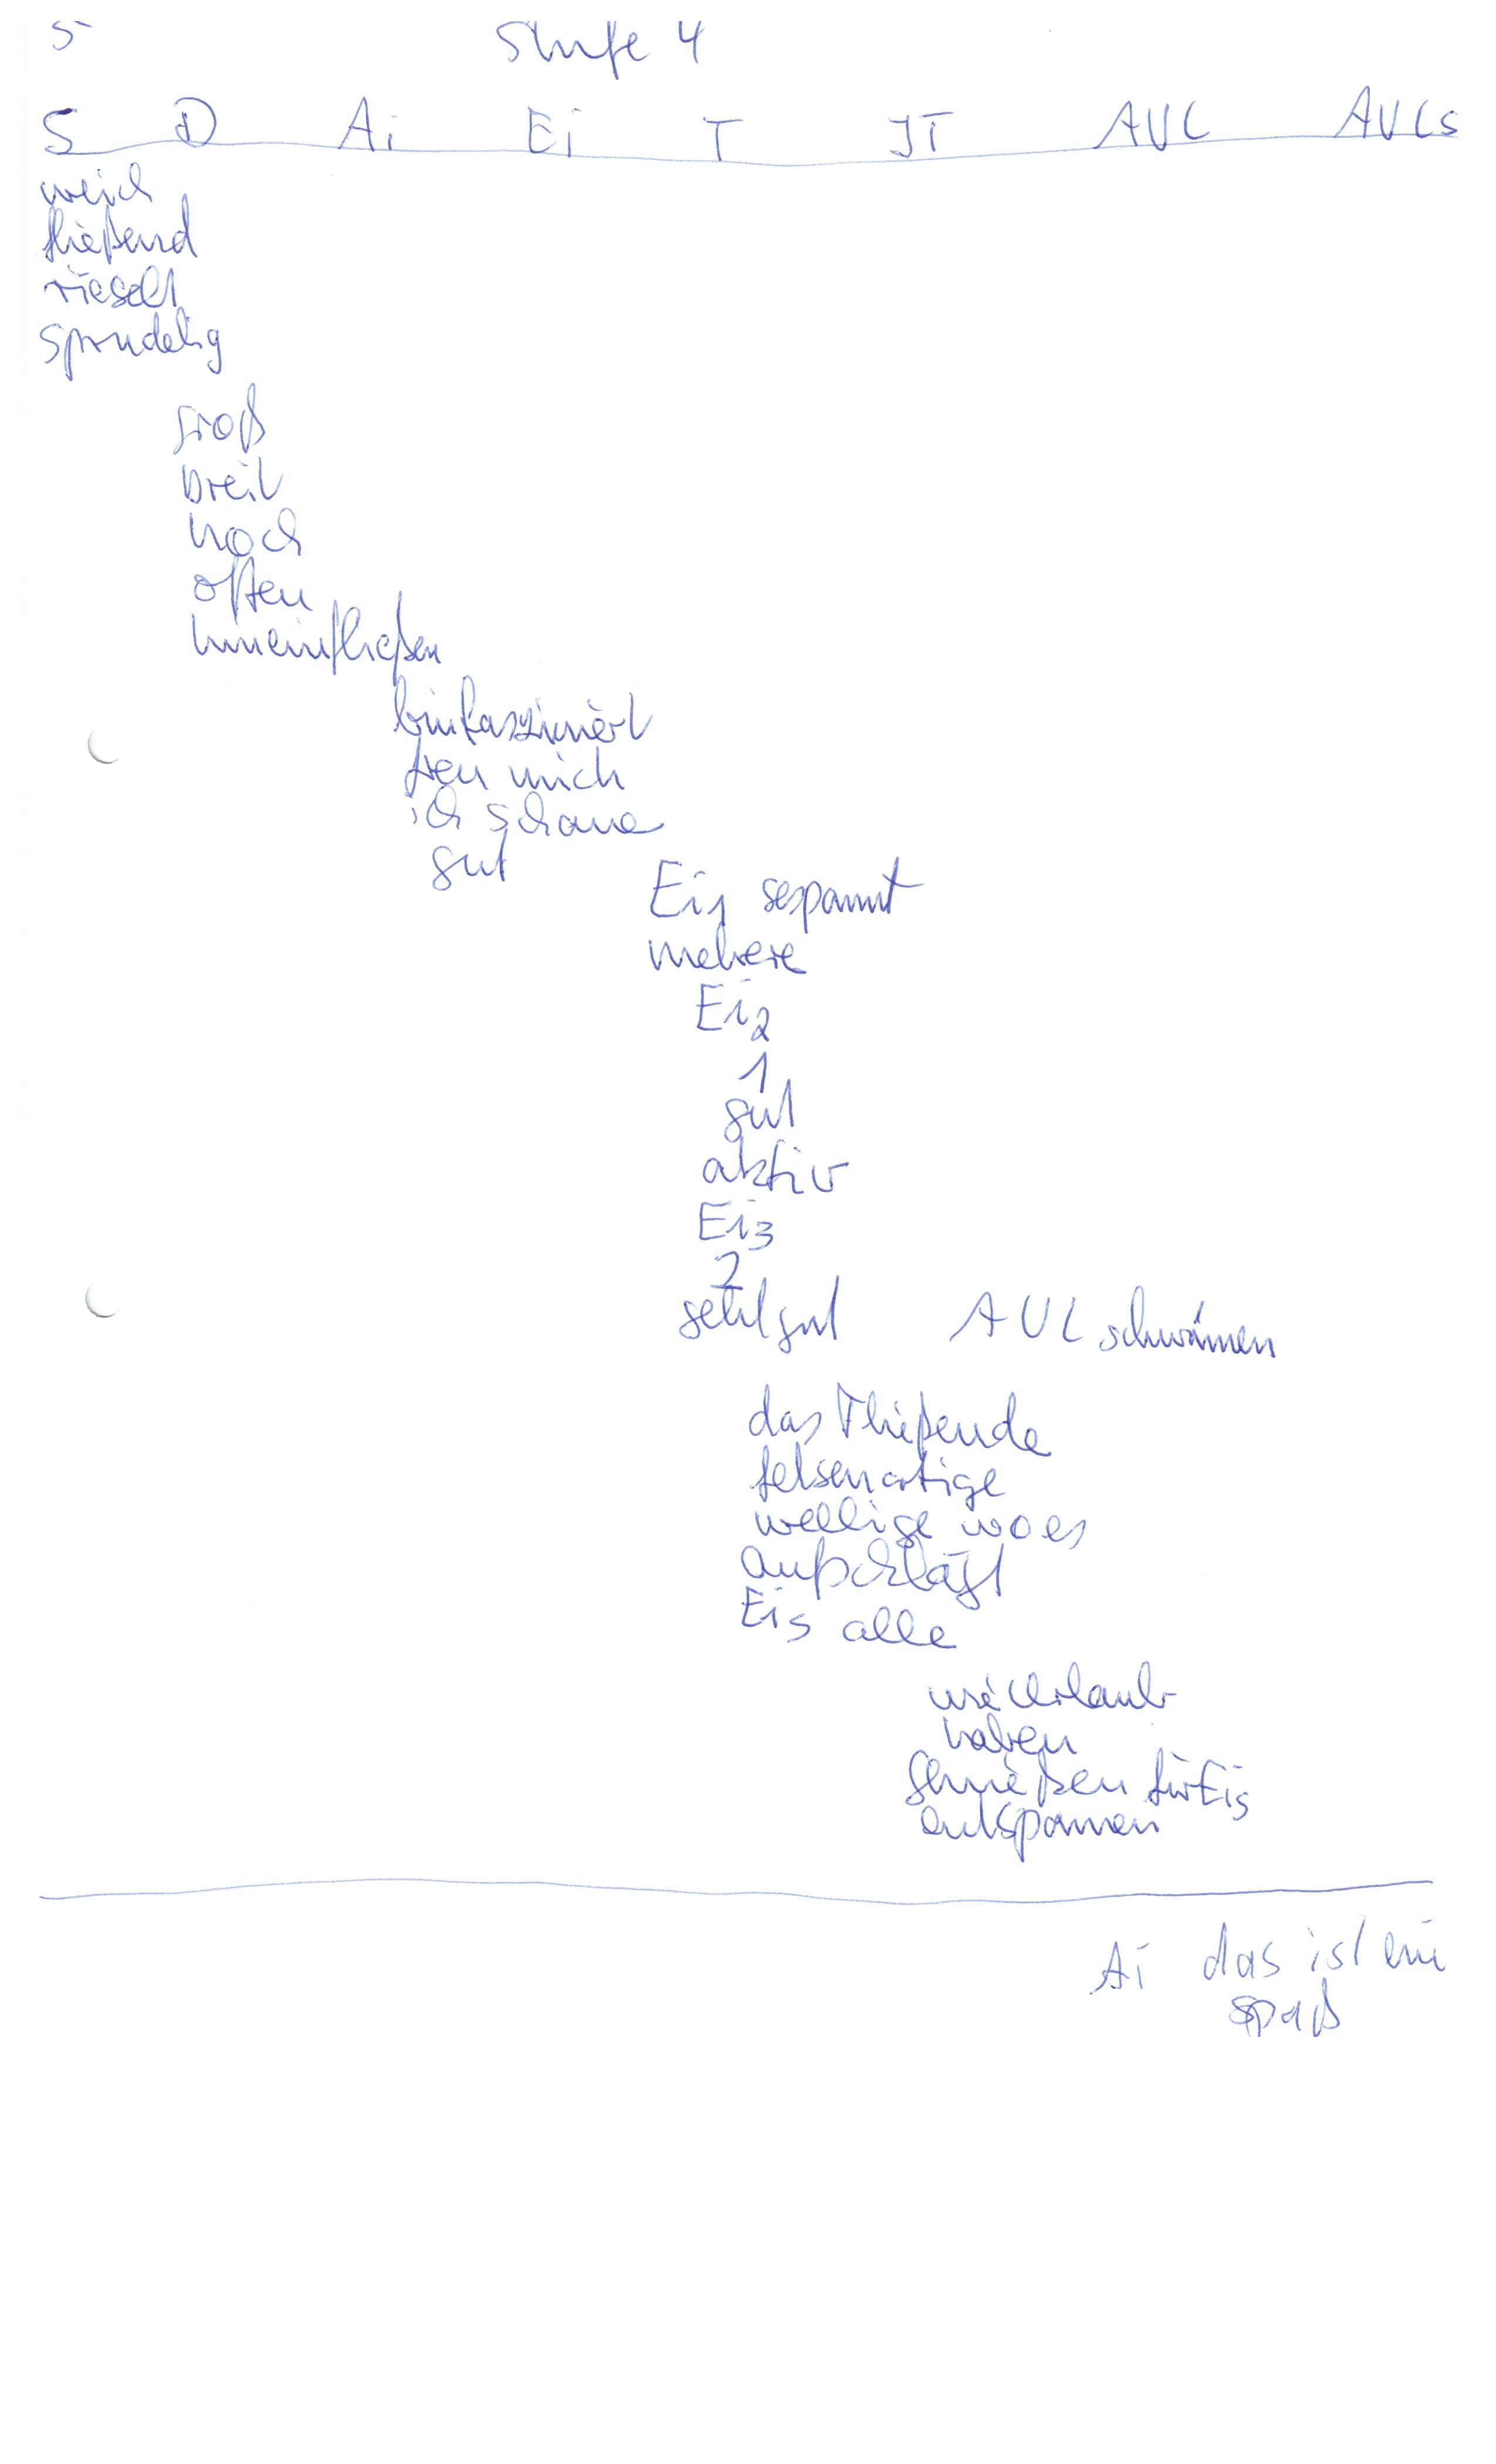 5
Stufe 4
S D Ai Ei T IT AUL AULs
weich
fließend
rieselt
sprudelig
groß
breit
hoch
offen
hineinfließen
bin fasziniert
freu mich
ich schaue
gut
Ei1 gespannt
mehere
Ei2
1
gut
aktiv
Ei3
2
geht gut AUL schwimmen
das Fließende
felsenartige
wellige wo es
aufschlägt
Eis alle
wie Urlaub
haben
genießen für Eis
entspannen
Ai das ist ein
spaß